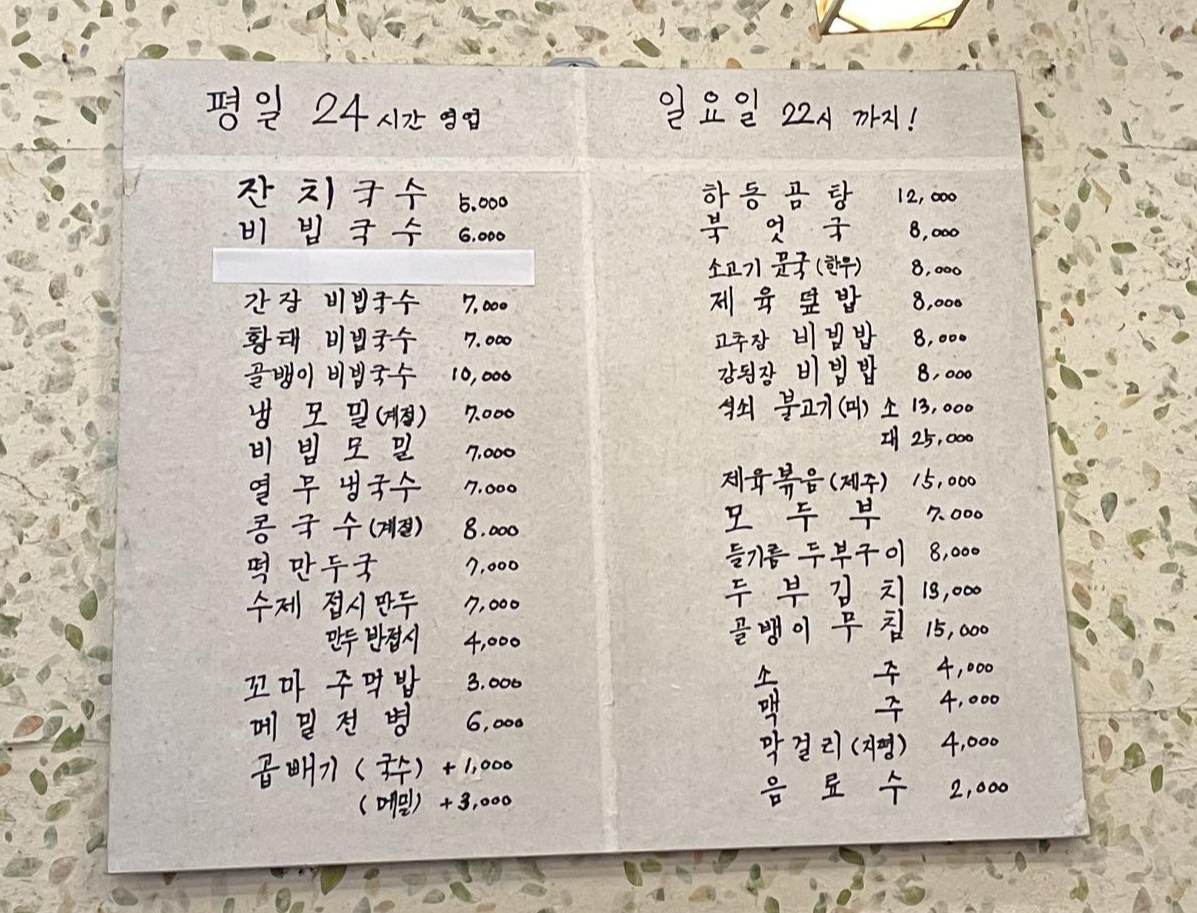 평일 24시간 영업
잔치국수 5.000
비빔국수 6.000
간장 비빔국수 7.000
황태 비빔국수 7.000
골뱅이 비빔국수 10,000
냉모밀(계절) 7.000
비빔모밀 7,000
열무냉국수 7.000
콩국수(계절) 8.000
떡만두국 7,000
수제 접시만두 7,000
만두 반접시 4,000
꼬마 주먹밥 3.000
메밀전병 6,000
곱배기 (국수) +1,000
(메밀) +3,000
일요일 22시 까지!
하등곰탕 12,000
북엇국 8,000
소고기 뭇국(한우) 8,000
제육덮밥 8,000
고추장 비빔밥 8,000
강된장 비빔밥 8,000
석쇠 불고기(미) 소 13,000
대 25,000
제육볶음(제주) 15,000
모두부 7.000
들기름 두부구이 8,000
두부김치 13,000
골뱅이무침 15,000
소주 4,000
맥주 4,000
막걸리(지평) 4,000
음료수 2,000